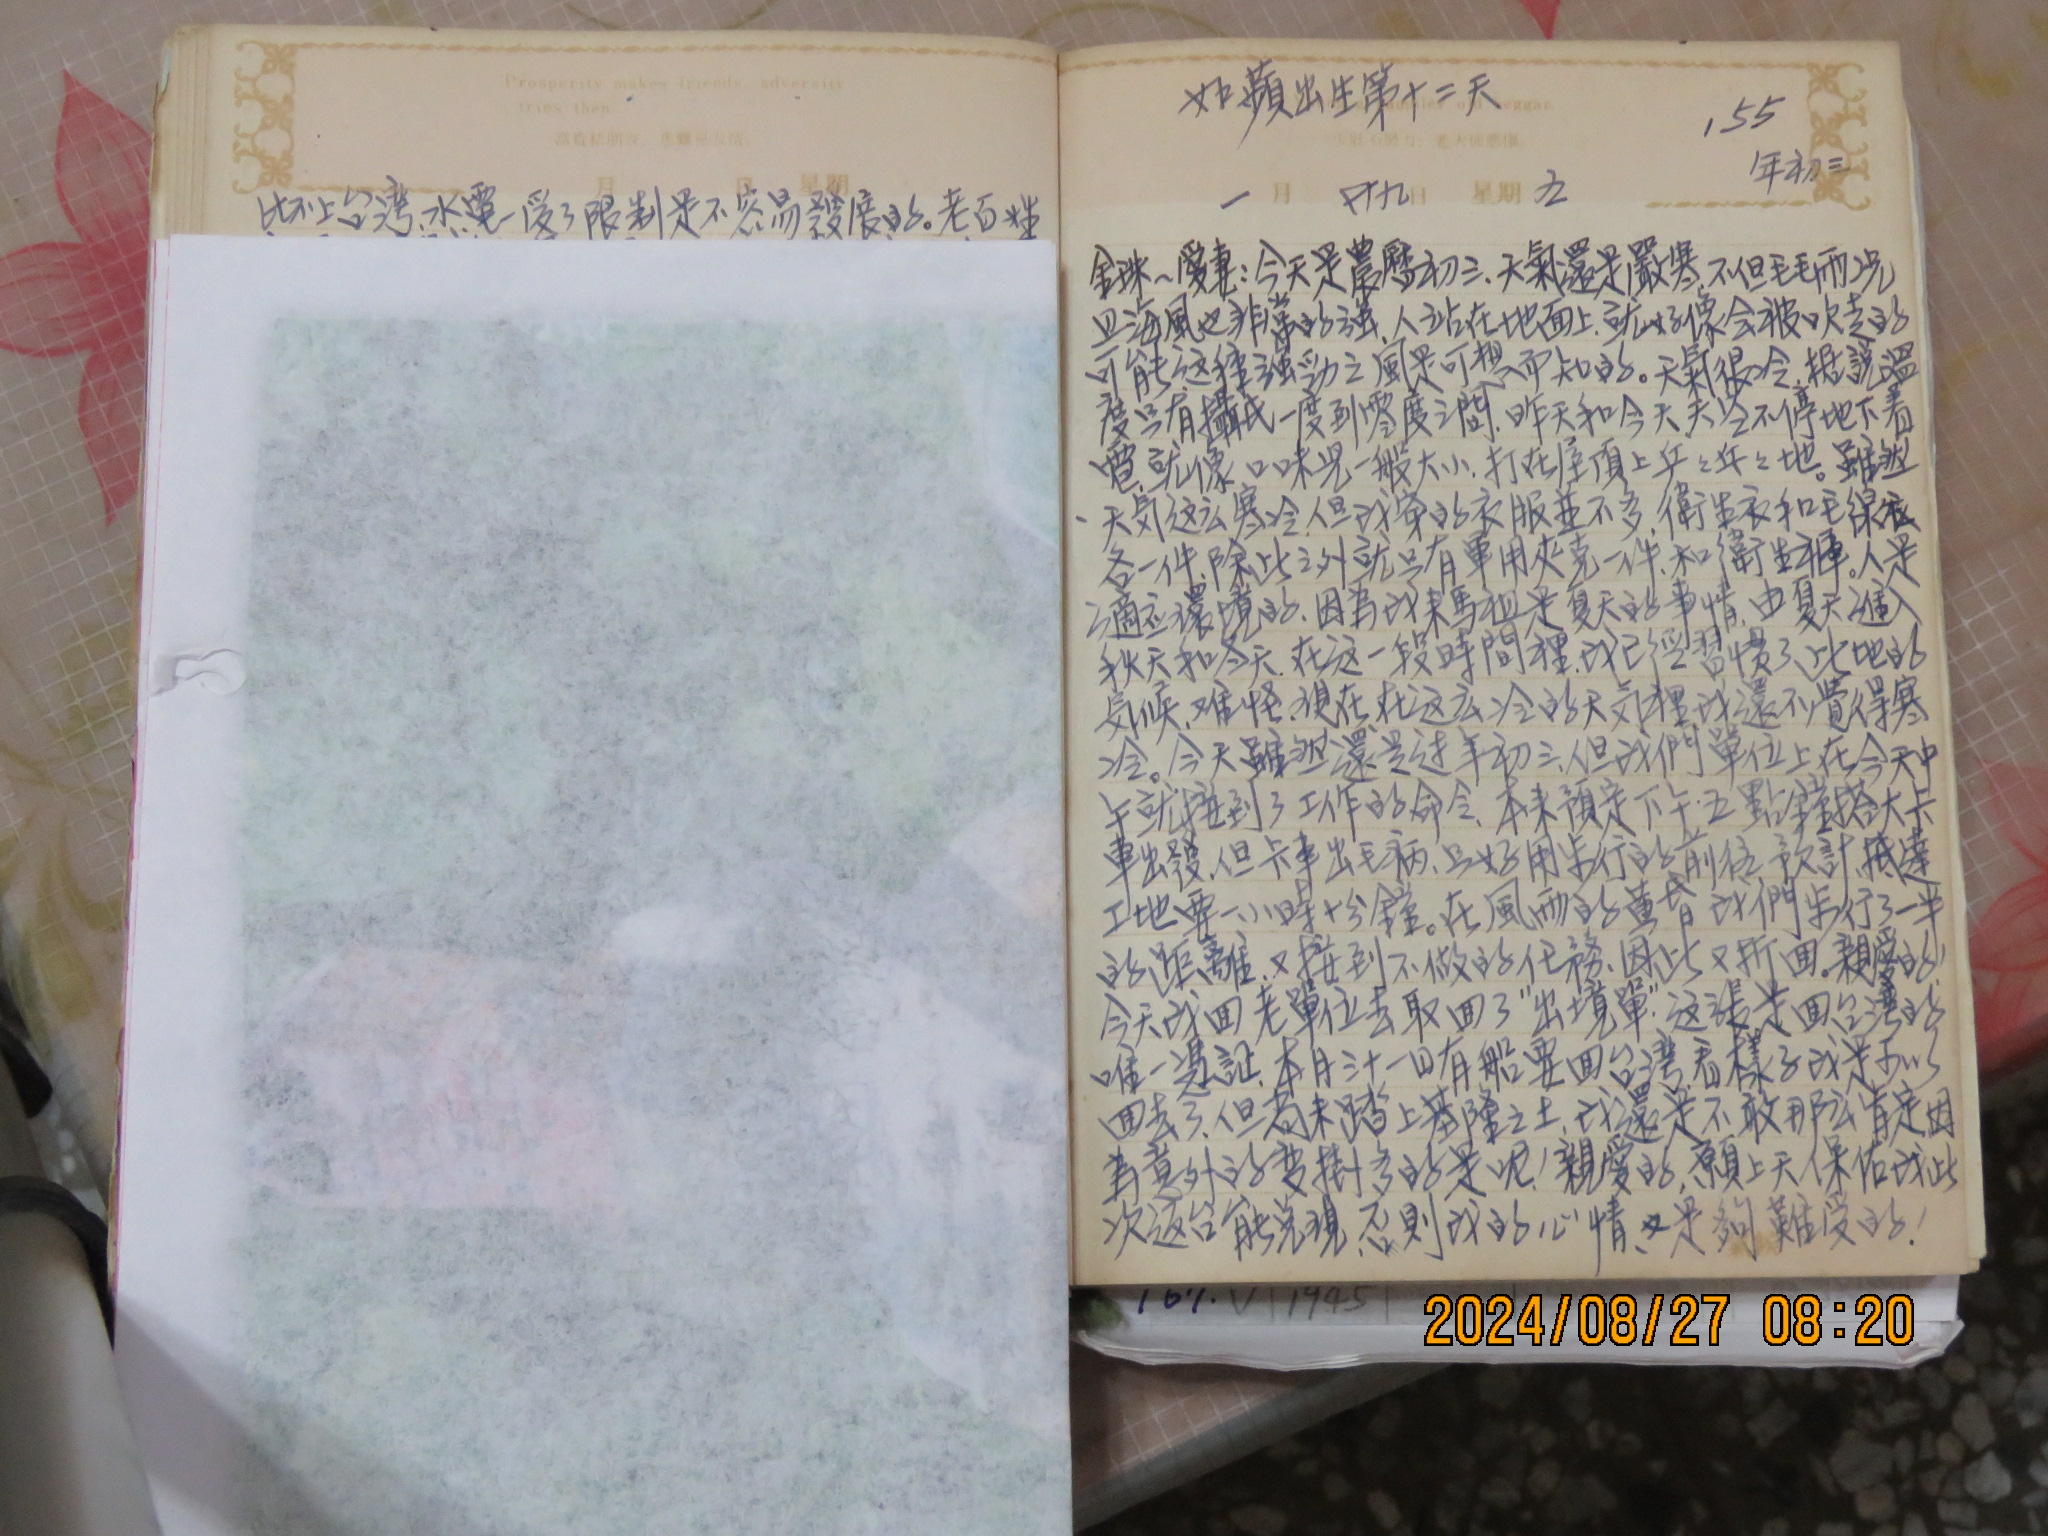 Prosperity makes friends, adversity
tries them.
月 日 星期
比不上台灣,水電一受了限制是不容易發展的。老百姓
如蘋出生第十二天
155
年初三
一月 廿九日 星期五
金珠~愛妻:今天是農曆初三,天氣還是嚴寒,不但毛毛雨况
且海風也非常的強,人站在地面上,就好像会被吹走的
可能,这種強勁之風是可想而知的。天氣很冷,据說溫
度只有攝氏一度到零度之間,昨天和今天天空不停地下着
雹,就像口味兒一般大小,打在屋頂上乒乒乓乓地。雖然
天気这么寒冷,但我穿的衣服並不多,衛生衣和毛線衣
各一件,除此之外就只有軍用夾克一件,和衛生褲。人是
適应環境的,因為我来馬祖是夏天的事情,由夏天進入
秋天和冬天,在这一段時間裡,我已經習慣了此地的
気候,难怪,現在在这么冷的天気裡,我還不覺得寒
冷。今天雖然還是过年初三,但我們單位上在今天中
午就接到了工作的命令,本来預定下午五點鐘搭大卡
車出發,但卡車出毛病,只好用步行的前往,預計抵達
工地要一小時十分鐘。在風雨的黃昏,我們步行了一半
的距離,又接到不做的任務,因此又折回。親愛的!
今天我回老單位去取回了"出境單",这張是回台灣的
唯一憑証,本月三十一日有船要回台灣,看樣子我是可以
回去了,但尚未踏上基隆之土,我還是不敢那么肯定,因
為意外的变掛多的是呢!親愛的,願上天保佑我此
次返台能兌現,否則我的心情,又是夠難受的!
1945
2024/08/27 08:20